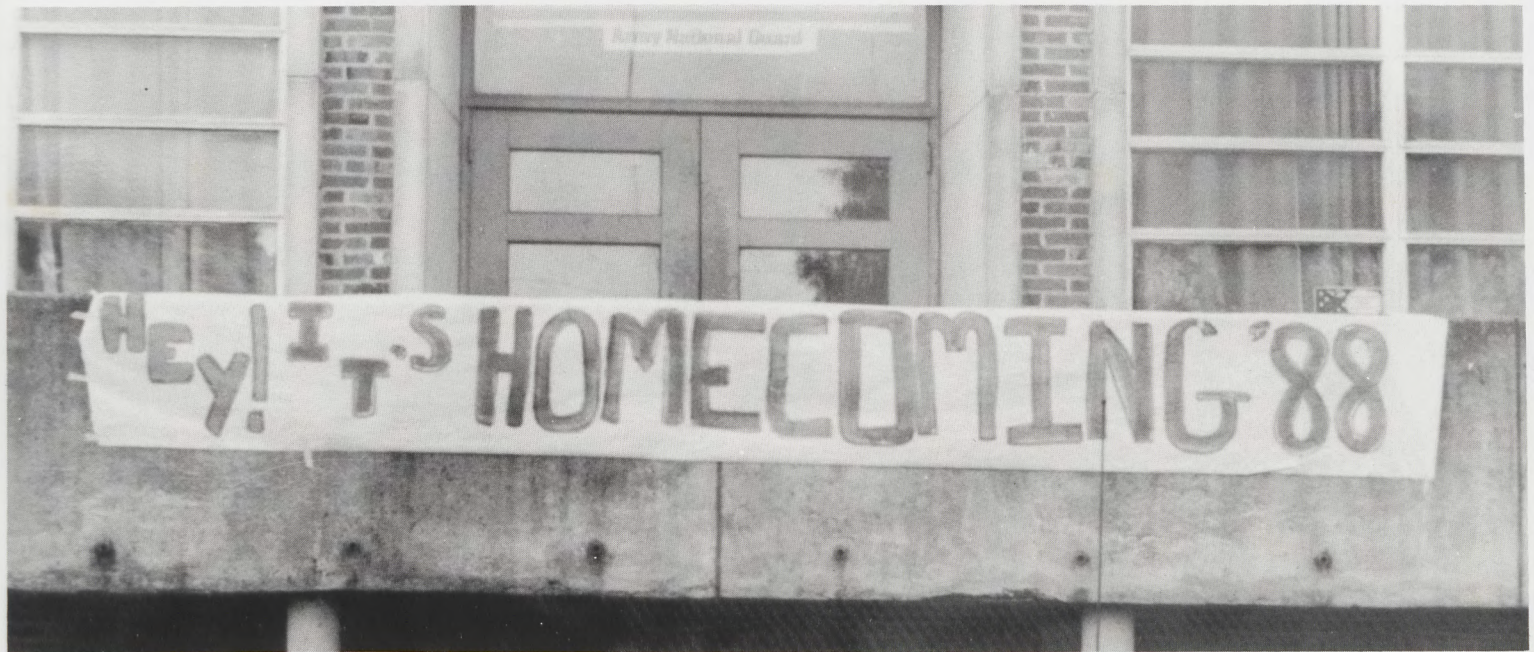 Army National Guard
HEY! IT'S HOMECOMING '88